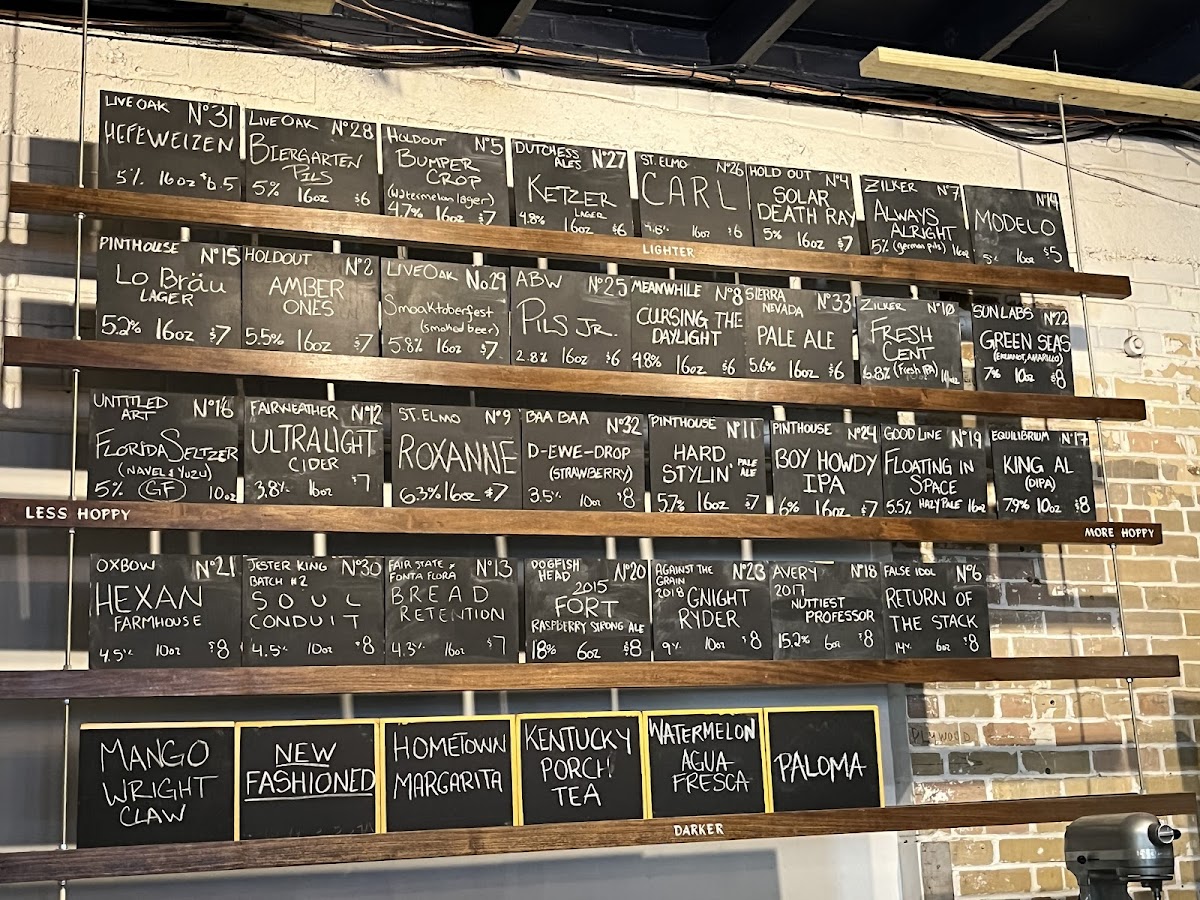 LIVE OAK N°31
HEFEWEIZEN
5% 16oz $6.5
LIVE OAK N°28
BIERGARTEN
PILS
5% 16oz $6
HOLDOUT N°5
BUMPER
CROP
(Watermelon lager)
4.7% 16oz $7
DUTCHESS
ALES N°27
KETZER
LAGER
4.8% 16oz $6
ST. ELMO N°26
CARL
16oz $6
HOLD OUT N°4
SOLAR
DEATH RAY
5% 16oz $7
ZILKER N°7
ALWAYS
ALRIGHT
5% (german pils) 16oz
N°14
MODELO
5% 16oz $5
LIGHTER
PINTHOUSE N°15
Lo Bräu
LAGER
5.2% 16oz $7
HOLDOUT N°2
AMBER
ONES
5.5% 16oz $7
LIVE OAK No.29
Smoaktoberfest
(smoked beer)
5.8% 16oz $7
ABW N°25
PILS JR.
2.8% 16oz $6
MEANWHILE N°8
CURSING THE
DAYLIGHT
4.8% 16oz $6
SIERRA
NEVADA N°33
PALE ALE
5.6% 16oz $6
ZILKER N°10
FRESH
CENT
6.8% (Fresh IPA)
SUN LABS N°22
GREEN SEAS
7% 10oz $8
UNTITLED
ART N°16
FLORIDA SELTZER
(NAVEL & YUZU)
5% GF 10oz
FAIRWEATHER N°12
ULTRALIGHT
CIDER
3.8% 16oz $7
ST. ELMO N°9
ROXANNE
6.3% 16oz $7
BAA BAA N°32
D-EWE-DROP
(STRAWBERRY)
3.5% 10oz $8
PINTHOUSE N°11
HARD
STYLIN' PALE ALE
5.7% 16oz $7
PINTHOUSE N°24
BOY HOWDY
IPA
6% 16oz $7
GOOD LINE N°19
FLOATING IN
SPACE
5.5% HAZY PALE 16oz
EQUILIBRIUM N°17
KING AL
(DIPA)
7.9% 10oz $8
LESS HOPPY
MORE HOPPY
OXBOW N°21
HEXAN
FARMHOUSE
4.5% 10oz $8
JESTER KING N°30
BATCH #2
SOUL
CONDUIT
4.5% 10oz $8
FAIR STATE x
FONTA FLORA N°13
BREAD
RETENTION
4.3% 16oz $7
DOGFISH
HEAD N°20
2015
FORT
RASPBERRY STRONG ALE
18% 6oz $8
AGAINST THE
GRAIN N°23
2018 GNIGHT
RYDER
9% 10oz $8
AVERY N°18
2017
NUTTIEST
PROFESSOR
15.2% 6oz $8
FALSE IDOL N°6
RETURN OF
THE STACK
14% 6oz $8
MANGO
WRIGHT
CLAW
NEW
FASHIONED
HOMETOWN
MARGARITA
KENTUCKY
PORCH
TEA
WATERMELON
AGUA
FRESCA
PALOMA
DARKER